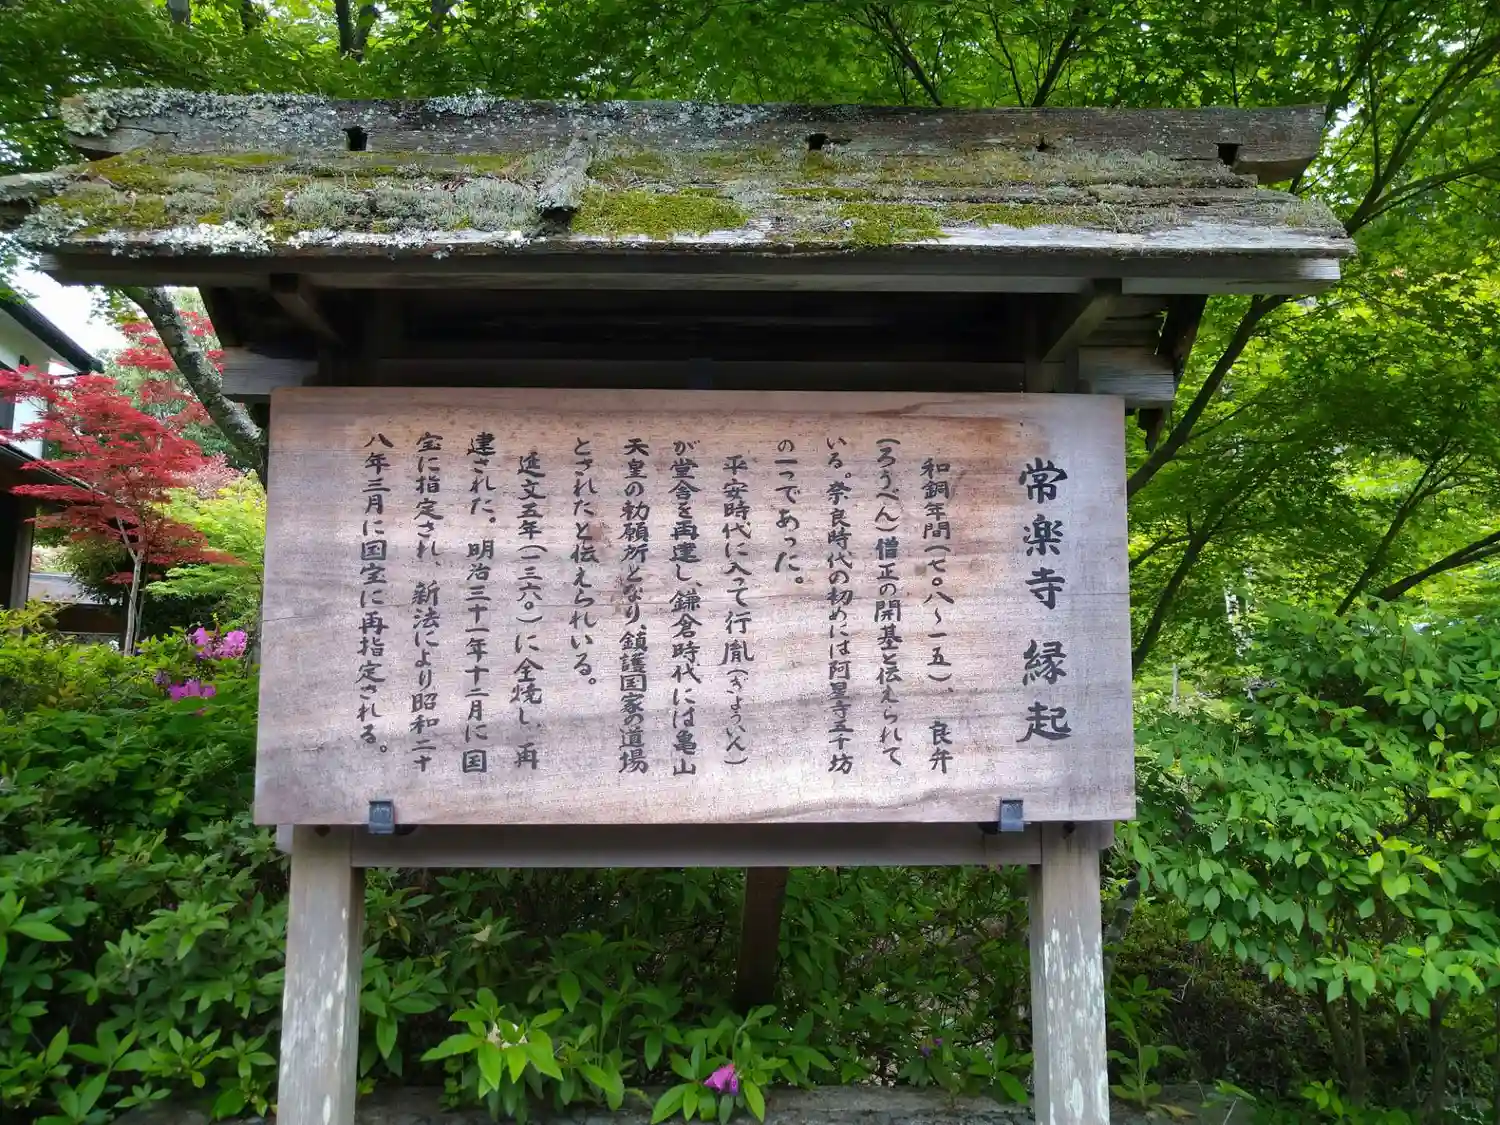 常楽寺 縁起
和銅年間(七〇八〜一五)、良弁
(ろうべん)僧正の開基と伝えられて
いる。奈良時代の初めには阿星寺五千坊
の一つであった。
平安時代に入って行胤(ぎょういん)
が堂舎を再建し、鎌倉時代には亀山
天皇の勅願所となり、鎮護国家の道場
とされたと伝えられいる。
延文五年(一三六〇)に全焼し、再
建された。明治三十一年十二月に国
宝に指定され、新法により昭和二十
八年三月に国宝に再指定される。